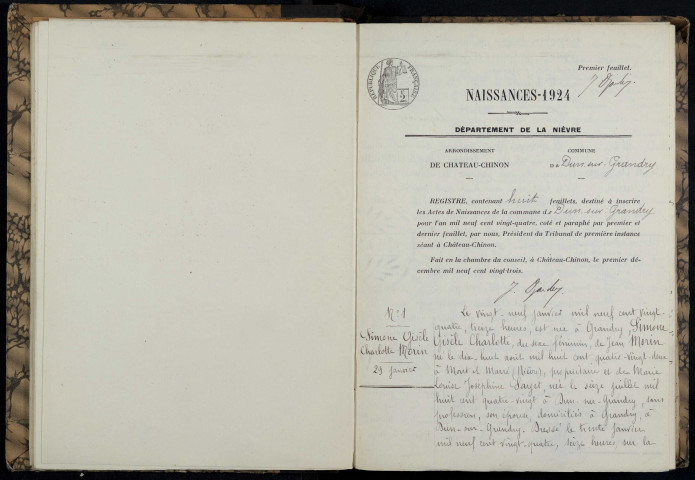 Premier feuillet.
RÉPUBLIQUE FRANÇAISE
NAISSANCES-1924
DÉPARTEMENT DE LA NIÈVRE
ARRONDISSEMENT
DE CHATEAU-CHINON
COMMUNE
de Dun-sur-Grandry
REGISTRE, contenant huit feuillets, destiné à inscrire
les Actes de Naissances de la commune de Dun-sur-Grandry
pour l'an mil neuf cent vingt-quatre, coté et paraphé par premier et
dernier feuillet, par nous, Président du Tribunal de première instance
séant à Château-Chinon.
Fait en la chambre du conseil, à Château-Chinon, le premier dé-
cembre mil neuf cent vingt-trois.
N° 1
Simone Gisèle
Charlotte Morin
29 janvier
Le vingt-neuf janvier mil neuf cent vingt-
quatre, treize heures, est née à Grandry, Simone
Gisèle Charlotte, du sexe féminin, de Jean Morin
né le dix-huit août mil huit cent quatre-vingt deux
à Mont et Marré (Nièvre), propriétaire et de Marie
Louise Joséphine Sayet, née le seize juillet mil
huit cent quatre-vingt à Dun-sur-Grandry, sans
profession, son épouse, domiciliés à Grandry, à
Dun-sur-Grandry. Dressé le trente janvier
mil neuf cent vingt-quatre, seize heures, sur la